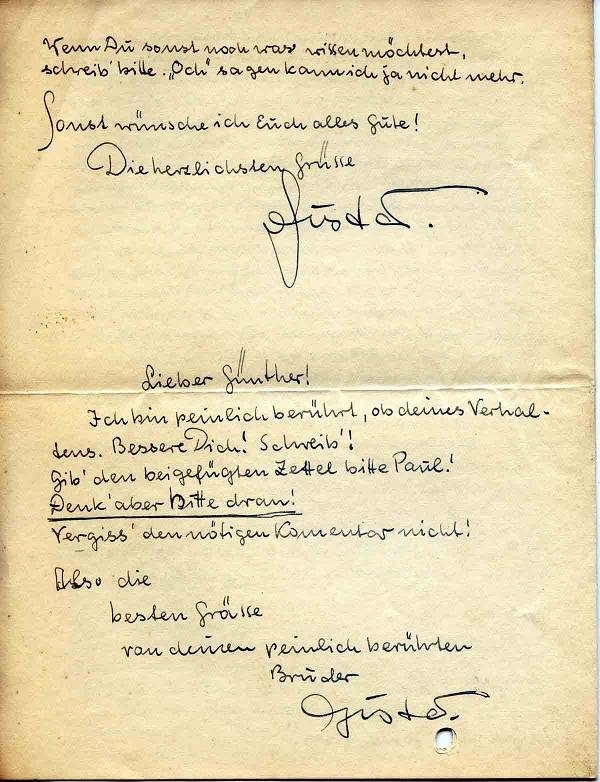 Wenn Du sonst noch was wissen möchtest,
schreib' bitte. „Och" sagen kann ich ja nicht mehr.
Sonst wünsche ich Euch alles Gute!
Die herzlichsten Grüsse
Gustav.
Lieber Günther!
Ich bin peinlich berührt, ob deines Verhal-
tens. Bessere Dich! Schreib'!
Gib' den beigefügten Zettel bitte Paul!
Denk' aber bitte dran!
Vergiss' den nötigen Komentar nicht!
Also die
besten Grüsse
von deinem peinlich berührten
Bruder
Gustav.